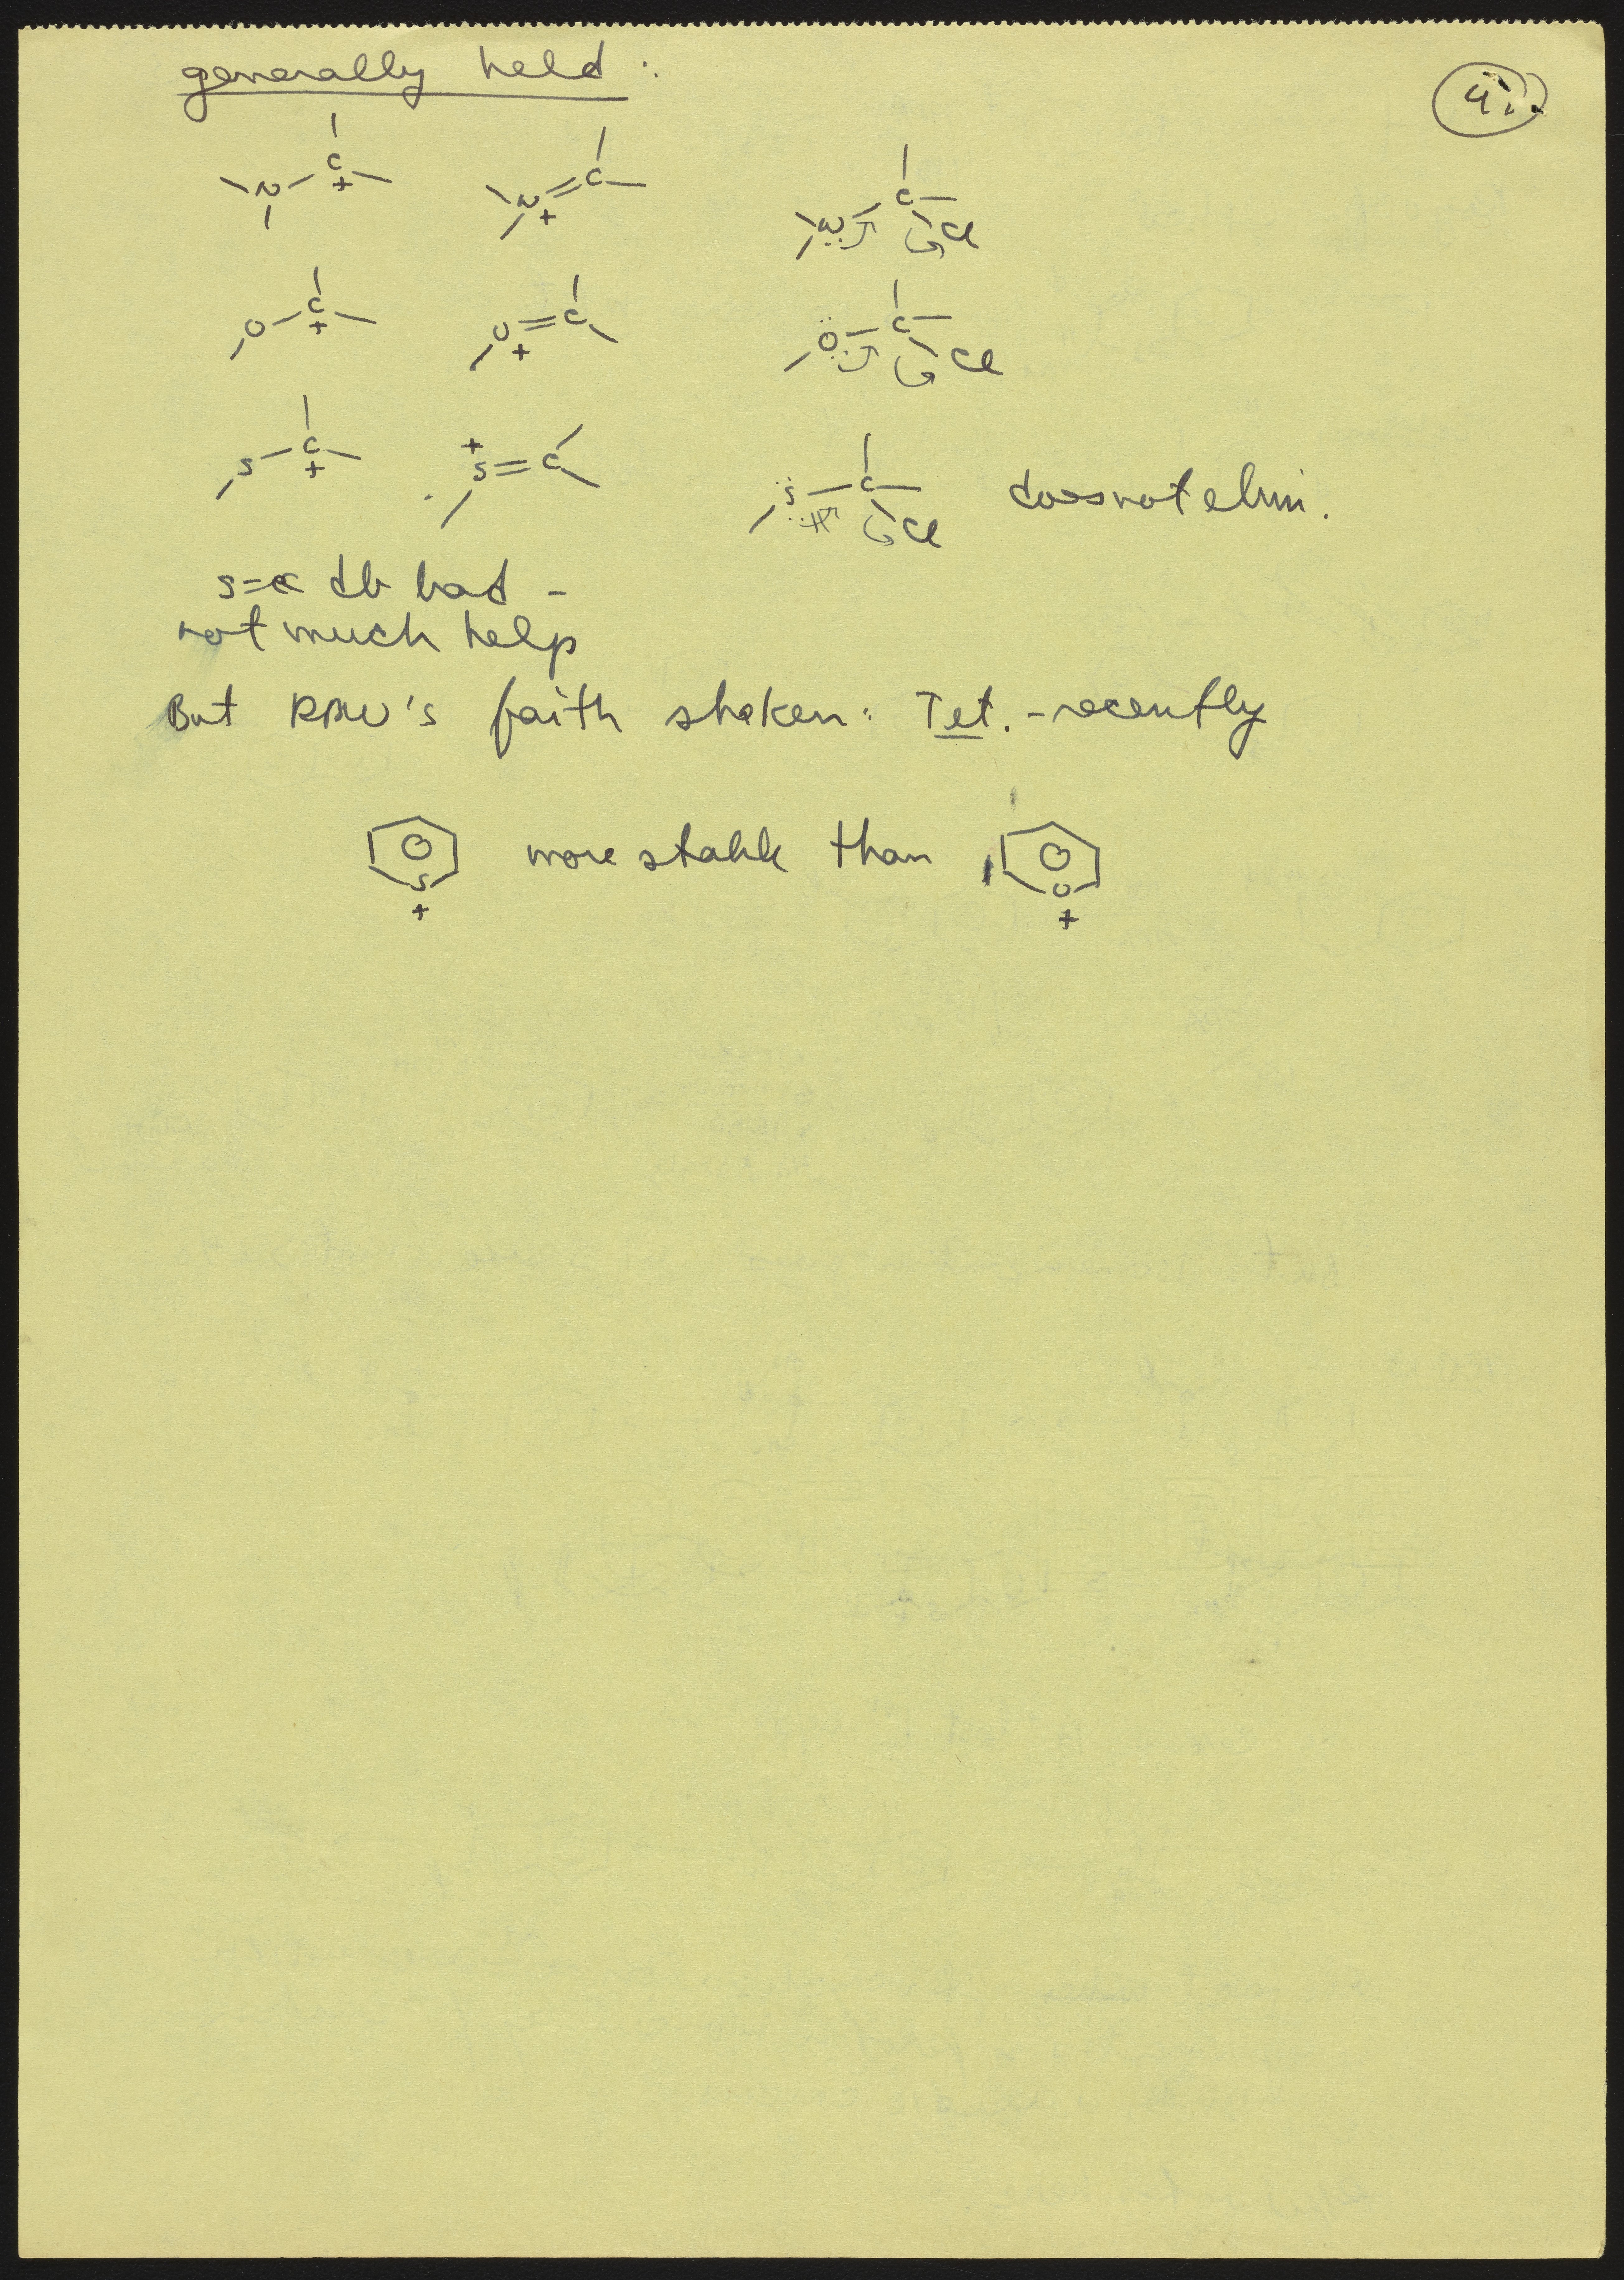 generally held :
4.
N C + N + C N C Cl
O C + O + C O C Cl
S C + + S = C S C Cl does not elim.
S=C db bad -
not much help
But RBW's faith shaken: Tet. - recently
S + more stable than O +